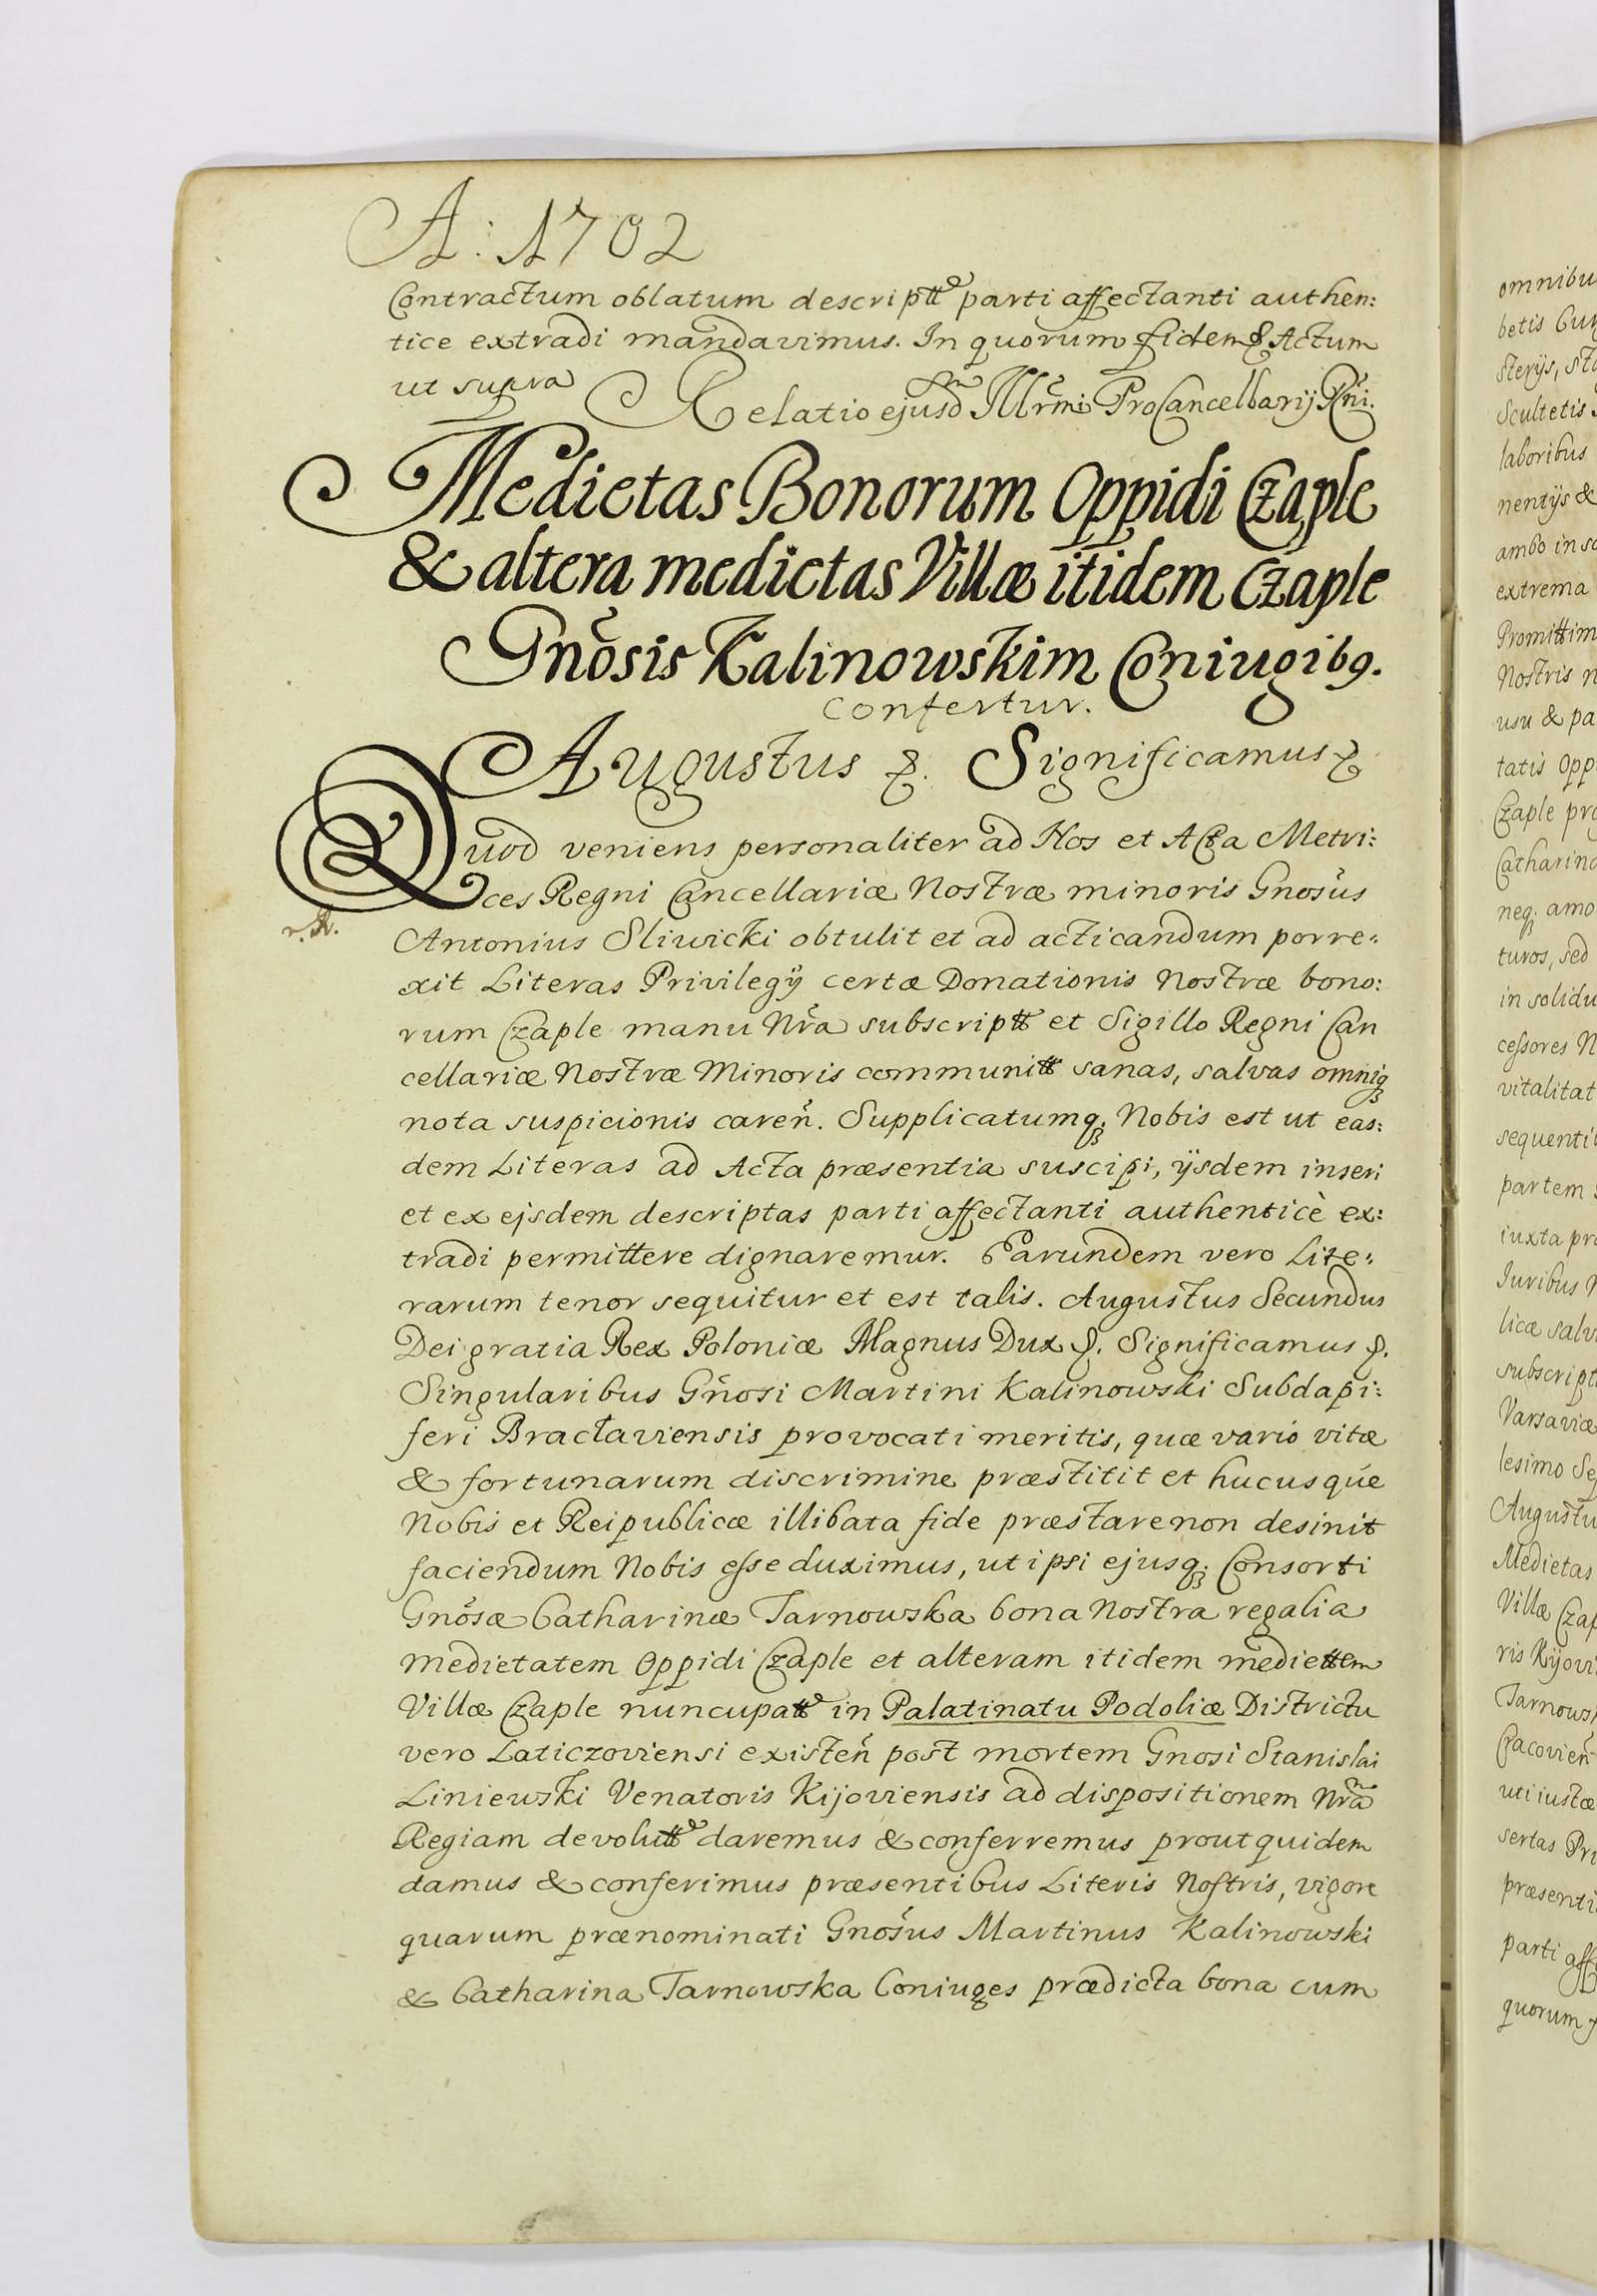 A: 1702
Contractum oblatum descriptt parti affectanti authen:
tice extradi mandavimus. In quorum fidem &. Actum
ut supra
Relatio ejusd Illrmi ProCancellarij Rni.
Medietas Bonorum Oppidi Czaple
& altera medietas Villæ itidem Czaple
Gnosis Kalinowskim Coniugib9.
Confertur.
Augustus &. Significamus &
Quod veniens personaliter ad Nos et Acta Metri:
ces Regni Cancellariæ Nostræ minoris Gnosus
r. A.
Antonius Sliwicki obtulit et ad acticandum porre:
xit Literas Privilegÿ certæ Donationis Nostræ bono:
rum Czaple manu Nra subscriptt et Sigillo Regni Can
cellariæ Nostræ Minoris communitt sanas, salvas omniq
nota suspicionis careñ. Supplicatumq; Nobis est ut eas:
dem Literas ad Acta præsentia suscipi, ÿsdem inseri
et ex ejsdem descriptas parti affectanti authenticè ex:
tradi permittere dignaremur. Earundem vero Lite:
rarum tenor sequitur et est talis. Augustus Secundus
Dei gratia Rex Poloniæ Magnus Dux &. Significamus &.
Singularibus Gnosi Martini Kalinowski Subdapi:
feri Braclaviensis provocati meritis, quæ vario vitæ
& fortunarum discrimine præstitit et hucusque
Nobis et Reipublicæ illibata fide præstare non desinit
faciendum Nobis esse duximus, ut ipsi ejusq; Consorti
Gnosæ Catharinæ Tarnowska bona Nostra regalia
medietatem Oppidi Czaple et alteram itidem mediettem
Villæ Czaple nuncupatt in Palatinatu Podoliæ Districtu
vero Laticzoviensi existeñ post mortem Gnosi Stanislai
Liniewski Venatoris Kijoviensis ad dispositionem Nra
Regiam devolutt daremus & conferremus prout quidem
damus & conferimus præsentibus Literis Nostris, vigore
quarum prænominati Gnosus Martinus Kalinowski
& Catharina Tarnowska Coniuges prædicta bona cum
omnibu
betis Cu
sterÿs, st
Scultetis
laboribus
nentÿs &
ambo in so
extrema
Promittim
Nostris n
usu & pa
tatis Opp
Czaple pro
Catharina
neq; amo
turos, sed
in solidu
cessores N
vitalitat
sequenti
partem
iuxta pr
Iuribus
licæ salv
subscript
Varsaviæ
lesimo Se
Augustu
Medietas
Villæ Czap
ris Kijovi
Tarnows
Cracovieñ
uti iustæ
sertas Pri
præsenti
parti aff
quorum